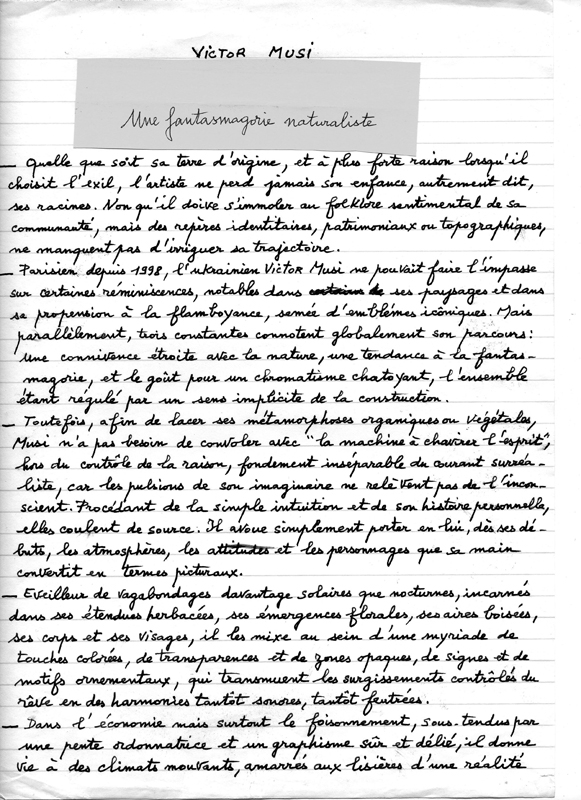 VICTOR MUSI
Une fantasmagorie naturaliste
— Quelle que soit sa terre d'origine, et à plus forte raison lorsqu'il
choisit l'exil, l'artiste ne perd jamais son enfance, autrement dit,
ses racines. Non qu'il doive s'immoler au folklore sentimental de sa
communauté, mais des repères identitaires, patrimoniaux ou topographiques,
ne manquent pas d'irriguer sa trajectoire.
— Parisien depuis 1998, l'ukrainien Victor Musi ne pouvait faire l'impasse
sur certaines réminiscences, notables dans ses paysages et dans
sa propension à la flamboyance, semée d'emblèmes icôniques. Mais
parallèlement, trois constantes connotent globalement son parcours:
une connivence étroite avec la nature, une tendance à la fantas-
magorie, et le goût pour un chromatisme chatoyant, l'ensemble
étant régulé par un sens implicite de la construction.
— Toutefois, afin de lacer ses métamorphoses organiques ou végétales,
Musi n'a pas besoin de convoler avec "la machine à chavirer l'esprit",
hors du contrôle de la raison, fondement inséparable du courant surréa-
liste, car les pulsions de son imaginaire ne relèvent pas de l'incon-
scient. Procédant de la simple intuition et de son histoire personnelle,
elles coulent de source. Il avoue simplement porter en lui, dès ses dé-
buts, les atmosphères, les attitudes et les personnages que sa main
convertit en termes picturaux.
— Eveilleur de vagabondages davantage solaires que nocturnes, incarnés
dans ses étendues herbacées, ses émergences florales, ses aires boisées,
ses corps et ses visages, il les mixe au sein d'une myriade de
touches colorées, de transparences et de zones opaques, de signes et de
motifs ornementaux, qui transmuent les surgissements contrôlés du
rêve en des harmonies tantôt sonores, tantôt feutrées.
— Dans l'économie mais surtout le foisonnement, sous-tendus par
une pente ordonnatrice et un graphisme sûr et délié, il donne
vie à des climats mouvants, amarrés aux lisières d'une réalité